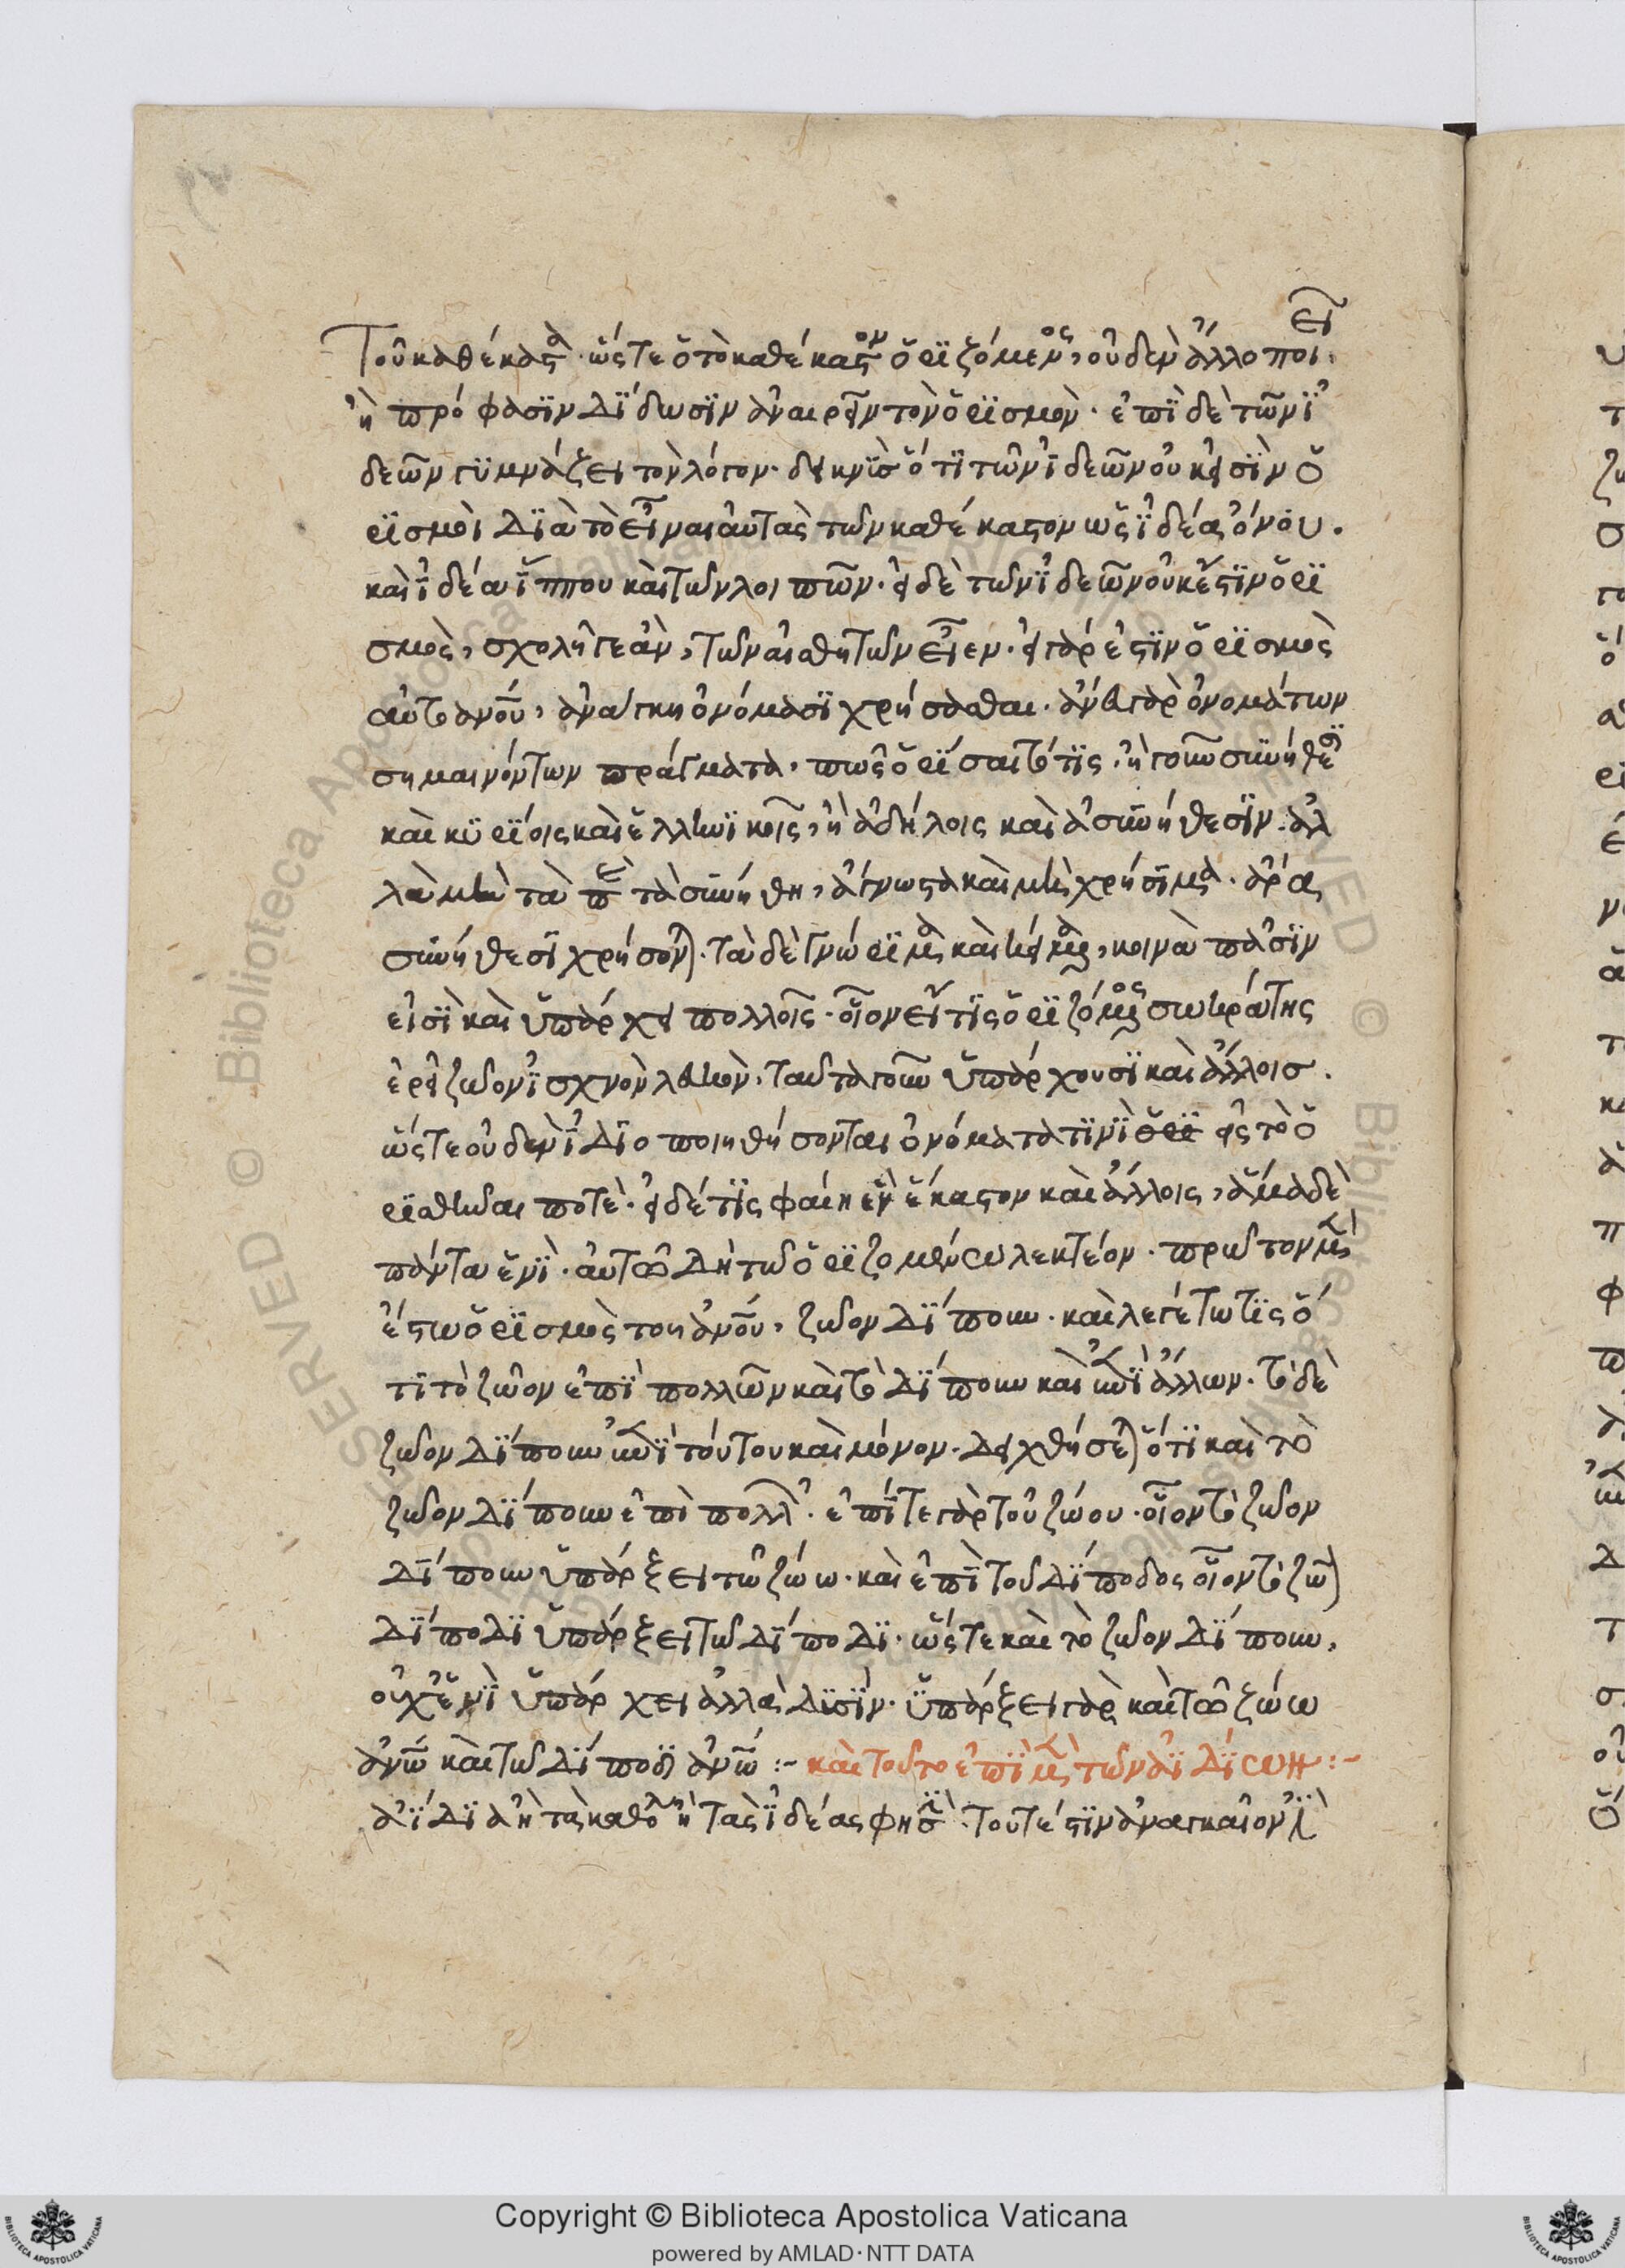 τοῦ καθέκαστα. ὥστε ὁ τὸ καθέκαστον ὁριζόμενος, οὐδὲν ἄλλο ποιεῖ
ἢ πρόφασιν δίδωσιν ἀναιρεῖν τὸν ὁρισμὸν. ἐπὶ δὲ τῶν ἰ
δεῶν γυμνάζει τὸν λόγον. δεικνὺς ὅτι τῶν ἰδεῶν οὐκ εἰσὶν ὁ
ρισμοὶ διὰ τὸ εἶναι αὐτὰς τῶν καθέκαστον ὡς ἰδέα ὄνου.
καὶ ἰδέα ἵππου καὶ τῶν λοιπῶν. εἰ δὲ τῶν ἰδεῶν οὐκ ἔστιν ὁρι
σμὸς, σχολῆ γε ἂν, τῶν αἰσθητῶν εἶεν. εἰ γάρ ἐστιν ὁρισμὸς
αὐτοανου, ἀνάγκη ὀνόμασι χρήσασθαι. ἄνευ γὰρ ὀνομάτων
σημαινόντων πράγματα, πῶς ὁρίσαιτό τις, ἢ γοῦν συνήθεσι
καὶ κυρίοις καὶ ἑλληνικοῖς, ἢ ἀδήλοις καὶ ἀσυνήθεσιν. ἀλ
λὰ μὴν τὰ παρὰ τὰ συνήθη, ἄγνωστα καὶ μὴ χρήσιμα. ἄρα
συνήθεσι χρήσονται. τὰ δὲ γνώριμα καὶ κείμενα, κοινὰ πᾶσιν
εἰσὶ καὶ ὑπάρχει πολλοῖς. οἷον εἴ τις ὁριζόμενος σωκράτης
ἐρεῖ ζῶον ἰσχνὸν λευκὸν. ταῦτα γοῦν ὑπάρχουσι καὶ ἄλλοισ.
ὥστε οὐδὲν ἴδιο ποιηθήσονται ὀνόματα τινὶ ὁρι εἰς τὸ ὁ
ρισθῆναι ποτὲ. εἰ δέ τις φαίη ἓν ἕκαστον καὶ ἄλλοις, ἅμα δὲ
πάντα ἑνὶ. αὐτῶ δὴ τῶ ὁριζομένω λεκτέον. πρῶτον μὲν
ἔστω ὁρισμὸς του ἀνου, ζῶον δίπουν. καὶ λεγέτω τις ὅ
τι τὸ ζῶον ἐπὶ πολλῶν καὶ τὸ δίπουν καὶ ἐπὶ ἄλλων. τὸ δὲ
ζῶον δίπουν ἐπὶ τούτου καὶ μόνον. δειχθήσεται ὅτι καὶ τὸ
ζῶον δίπουν ἐπὶ πολλ. ἐπί τε γὰρ τοῦ ζώου. οἷον τὸ ζῶον
δίπουν ὑπάρξει τῶ ζώω. καὶ ἐπὶ τοῦ δίποδος οἷον τὸ ζῶον
δίποδι ὑπάρξει τῶ δίποδι. ὥστε καὶ τὸ ζῶον δίπουν,
οὐχ ἑνὶ ὑπάρχει ἀλλὰ δισὶν. ὑπάρξει γὰρ καὶ τῶ ζώω
ἀνω καὶ τῶ δίποδι ἀνω :- καὶ τοῦτο ἐπὶ μὲν τῶν ἀϊδίων :-
ἀΐδια ἢ τὰ καθόλου ἢ τὰς ἰδέας φησὶ. τουτέστιν ἀναγκαῖον